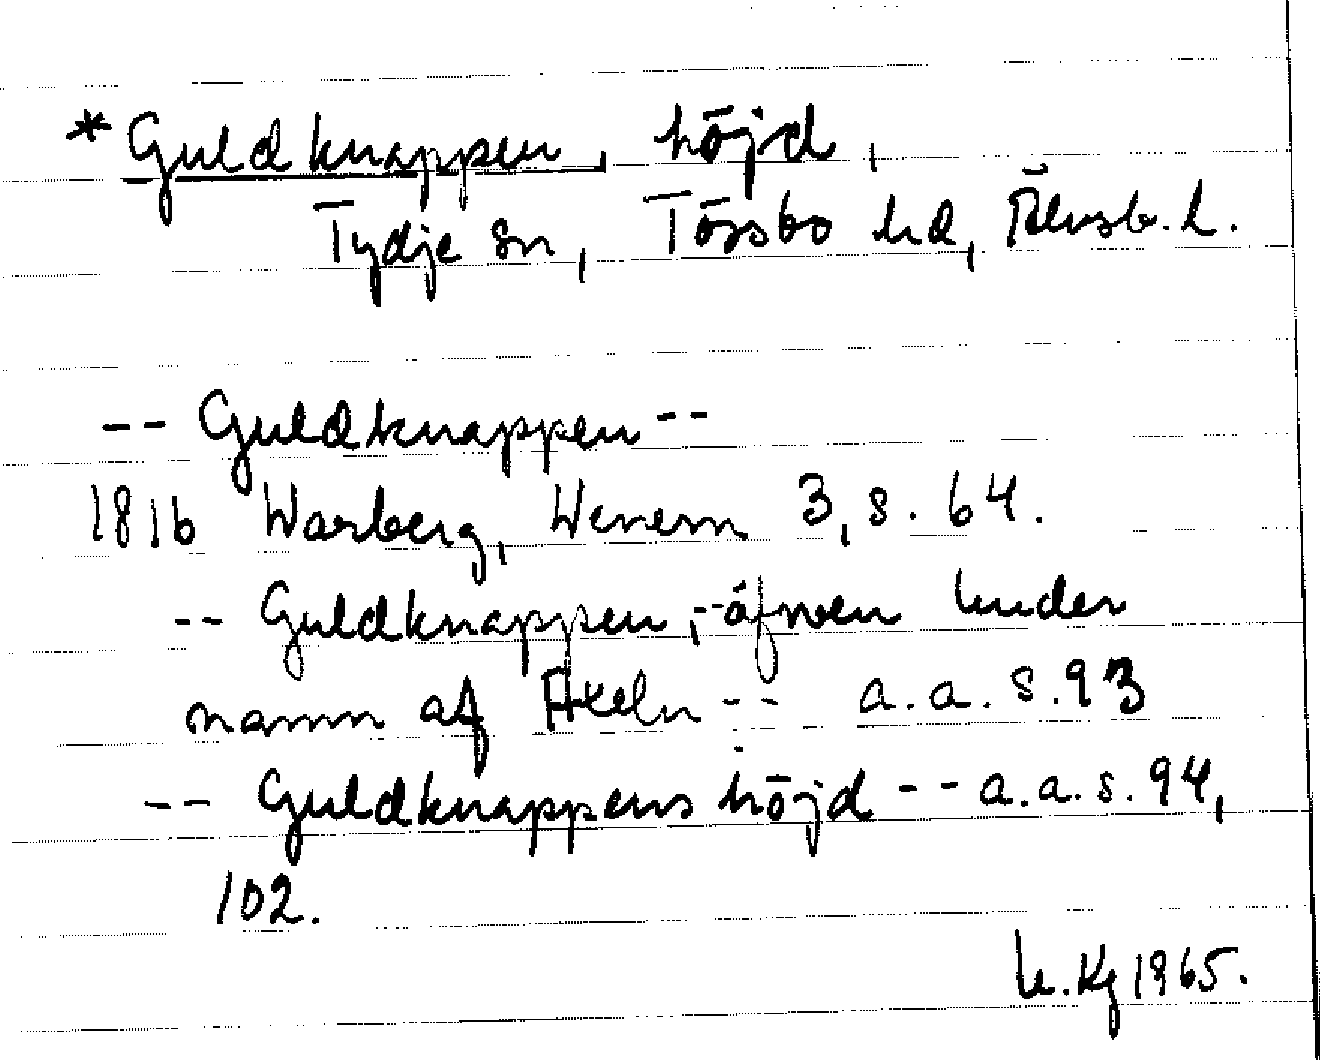 *Guldknappen, höjd,
Tydje sn, Tössbo hd, Älvsb. l.
-- Guldknappen --
1816 Warberg, Wenern 3, s. 64.
-- Guldknappen, -äfwen under
namn af Axeln -- a.a. s. 93
-- Guldknappens höjd -- a.a. s. 94,
102.
Kg 1965.